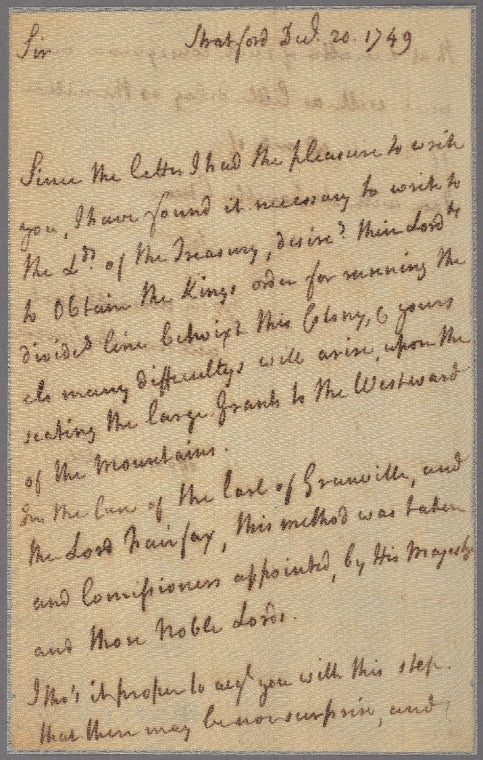 Sir
Stratford Decr. 20. 1749
Since the letter I had the pleasure to write
you, I have found it necessary to write to
the Lds. of the Treasury, desireg. their Lordps
to Obtain the Kings order for runing the
divideg line betwixt this Colony, & yours
els many difficultys will arise, upon the
seating the large Grants to the Westward
of the Mountains.
In the Case of the Earl of Granville, and
the Lord Fairfax, this method was taken
and Comissioners appointed, by His Majesty
and those Noble Lords.
I tho't it proper to acqt. you with this step.
that there may be no surprise, and